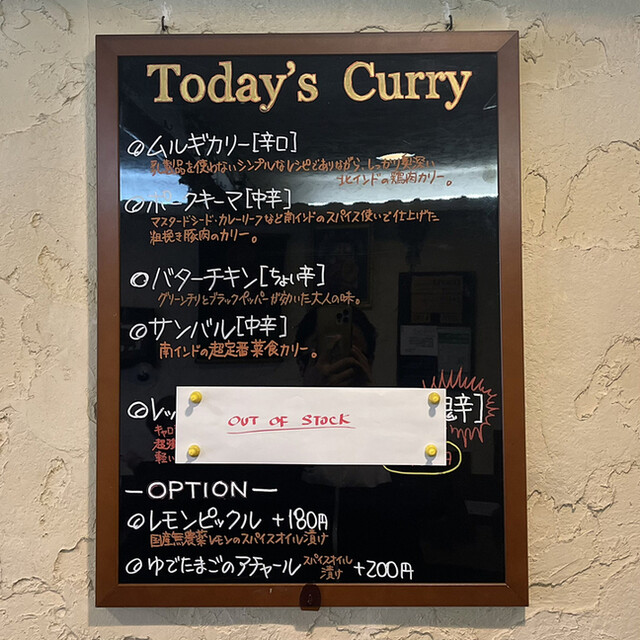 Today's Curry
ムルギカリー[辛口]
乳製品を使わないシンプルなレシピでありながら、しっかり奥深い
北インドの鶏肉カリー。
ポークキーマ[中辛]
マスタードシード・カレーリーフなど南インドのスパイス使いで仕上げた
粗挽き豚肉のカリー。
バターチキン[ちょい辛]
グリーンチリとブラックペッパーが効いた大人の味。
サンバル[中辛]
南インドの超定番菜食カリー。
レッ 辛]
OUT OF STOCK
キャロ
超強
軽い
円
—OPTION—
レモンピックル +180円
国産無農薬レモンのスパイスオイル漬け
ゆでたまごのアチャール スパイスオイル漬け +200円